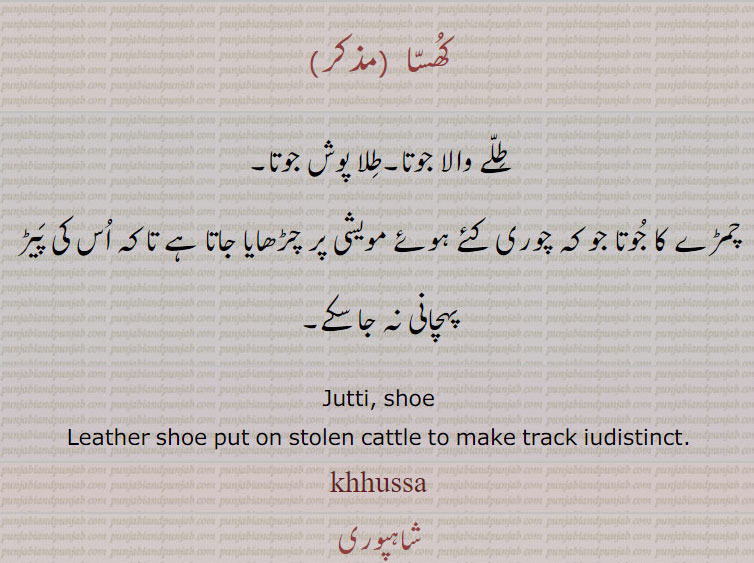 کُھسّا (مذکر)
طِلّے والا جوتا۔طِلا پوش جوتا۔
چمڑے کا جُوتا جو کہ چوری کئے ہوئے مویشی پر چڑھایا جاتا ہے تا کہ اُس کی پَیڑ
پہچانی نہ جا سکے۔
Jutti, shoe
Leather shoe put on stolen cattle to make track iudistinct.
khhussa
شاہپوری